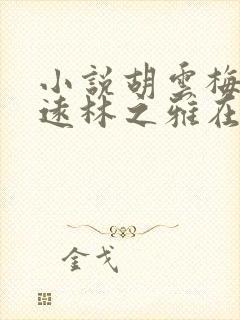 小説胡雲梅
遠林之雅在
金戈